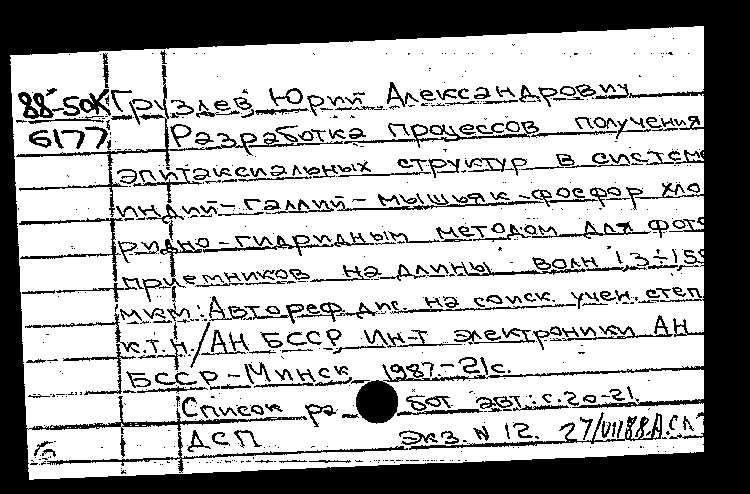 88-50К Груздев Юрий Александрович
6177 Разработка процессов получения
эпитаксиальных структур в системе
индий-галлий-мышьяк-фосфор хло
ридно-гидридным методом для фото
приемников на длины волн 1,3÷1,55
мкм: Автореф. дис. на соиск. учен. степ.
к.т.н./АН БССР, Ин-т электроники АН
БССР-Минск, 1987.-21с.
Список работ авт.: с. 20-21.
ДСП Экз. N 12. 27/VII88.
б